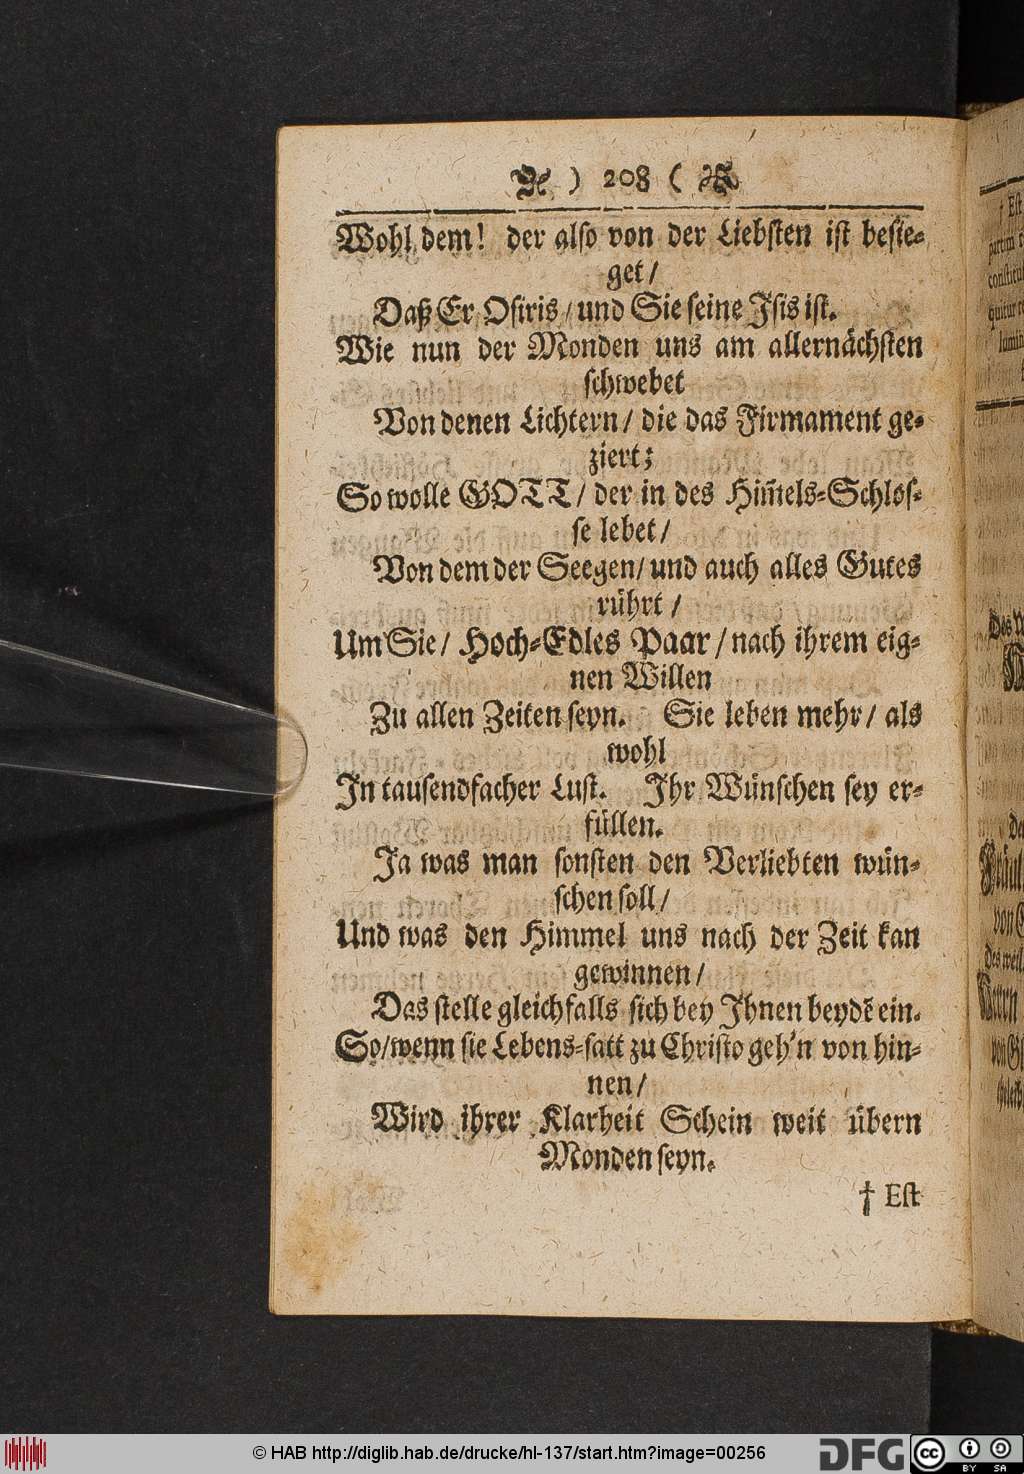 ) 208 (
Wohl dem! der also von der Liebsten ist besie-
get/
Daß Er Osiris/ und Sie seine Isis ist.
Wie nun der Monden uns am allernächsten
schwebet
Von denen Lichtern/ die das Firmament ge-
ziert;
So wolle GOTT/ der in des Him̃els-Schlos-
se lebet/
Von dem der Seegen/ und auch alles Gutes
rührt/
Um Sie/ Hoch-Edles Paar/ nach ihrem eig-
nen Willen
Zu allen Zeiten seyn. Sie leben mehr/ als
wohl
In tausendfacher Lust. Ihr Wünschen sey er-
füllen.
Ja was man sonsten den Verliebten wün-
schen soll/
Und was den Himmel uns nach der Zeit kan
gewinnen/
Das stelle gleichfalls sich bey Ihnen beydẽ ein.
So/ wenn sie Lebens-satt zu Christo geh'n von hin-
nen/
Wird ihrer Klarheit Schein weit übern
Monden seyn.
† Est
© HAB http://diglib.hab.de/drucke/hl-137/start.htm?image=00256
DFG
cc BY SA